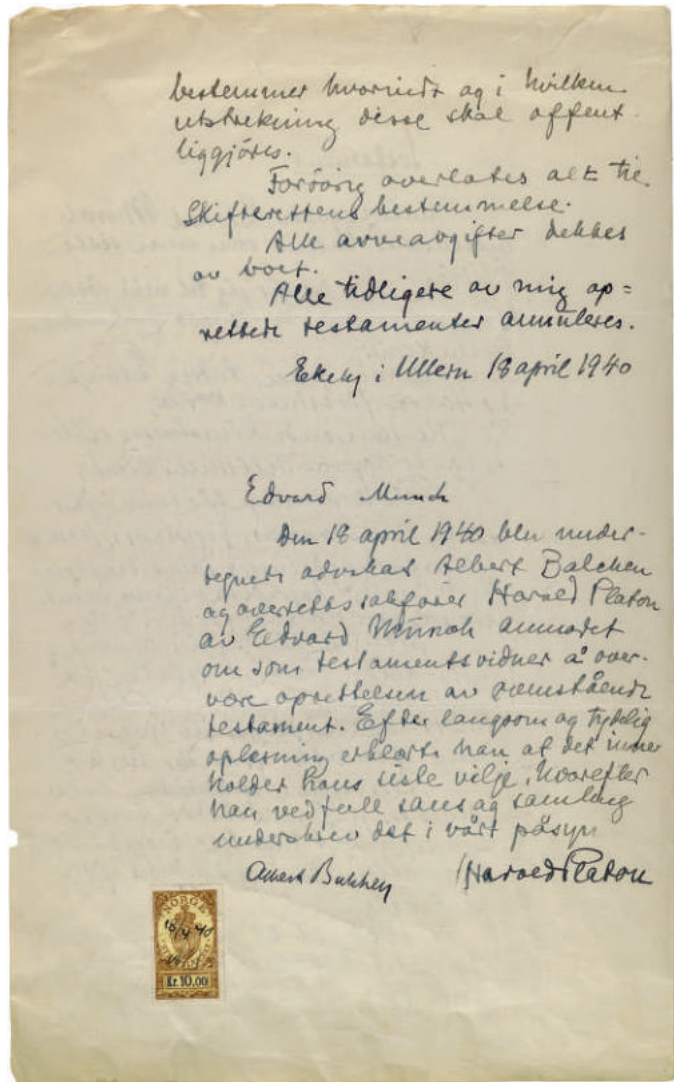 bestemmer hvorvidt og i hvilken
utstrekning disse skal offent-
liggjøres.
Forøvrig overlates alt til
Skifterettens bestemmelse.
Alle arveavgifter dekkes
av boet.
Alle tidligere av mig op=
rettede testamenter annuleres.
Ekely i Ullern 18 april 1940
Edvard Munch
Den 18 april 1940 blev under-
tegnede advokat Albert Balchen
og overrettssakfører Harald Platou
av Edvard Munch anmodet
om som testamentsvidner å over-
være oprettelsen av
testament. Efter langsom og tydelig
oplesning erklærte han at det inne
holder hans siste vilje, hvorefter
han ved full sans og samling
underskrev det i vårt påsyn
Albert Balchen Harald Platou
NORGE
18/4 40
Kr. 10,00